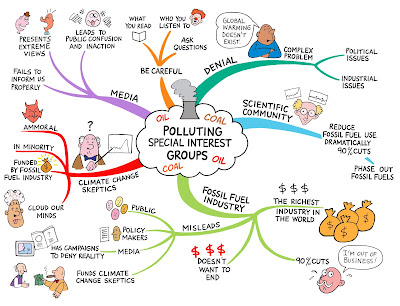 WHAT
YOU READ
WHO YOU
LISTEN TO
ASK
QUESTIONS
BE CAREFUL
LEADS TO
PUBLIC CONFUSION
AND INACTION
PRESENTS
EXTREME
VIEWS
FAILS TO
INFORM US
PROPERLY
MEDIA
GLOBAL
WARMING
DOESN'T
EXIST.
DENIAL
COMPLEX
PROBLEM
POLITICAL
ISSUES
INDUSTRIAL
ISSUES
SCIENTIFIC
COMMUNITY
REDUCE
FOSSIL FUEL USE
DRAMATICALLY
90% CUTS
PHASE OUT
FOSSIL FUELS
OIL
COAL
POLLUTING
SPECIAL INTEREST
GROUPS
OIL
COAL
?
AMMORAL
IN MINORITY
FUNDED BY FOSSIL
FUEL INDUSTRY
CLIMATE CHANGE
SKEPTICS
CLOUD OUR
MINDS
FOSSIL FUEL
INDUSTRY
$ $ $
THE RICHEST
INDUSTRY IN
THE WORLD
$
$
$
90% CUTS
I'M OUT OF
BUSINESS!
$ $ $
DOESN'T
WANT TO
END
MISLEADS
PUBLIC
POLICY
MAKERS
MEDIA
HAS CAMPAIGNS
TO DENY REALITY
FUNDS CLIMATE
CHANGE SKEPTICS